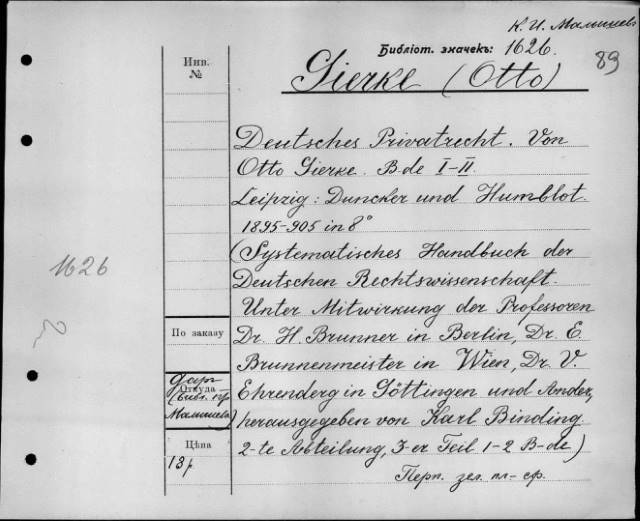 К. И. Малышевъ
Библіот. значекъ: 1626.
89
Gierke (Otto)
Инв.
№
Deutsches Privatrecht. Von
Otto Gierke. B-de I-II.
Leipzig: Duncker und Humblot.
1895-905 in 8°
(Systematisches Handbuch der
Deutschen Rechtswissenschaft.
Unter Mitwirkung der Professoren
Dr. H. Brunner in Berlin, Dr. E.
Brunnenmeister in Wien, Dr. V.
Ehrenderg in Göttingen und Ander,
herausgegeben von Karl Binding.
2-te Abteilung, 3-er Teil 1-2 B-de)
Перп. зел. пл-сф.
1626
По заказу
Даръ
Откуда
(Библ. пр.
Малышева)
Цѣна
13р